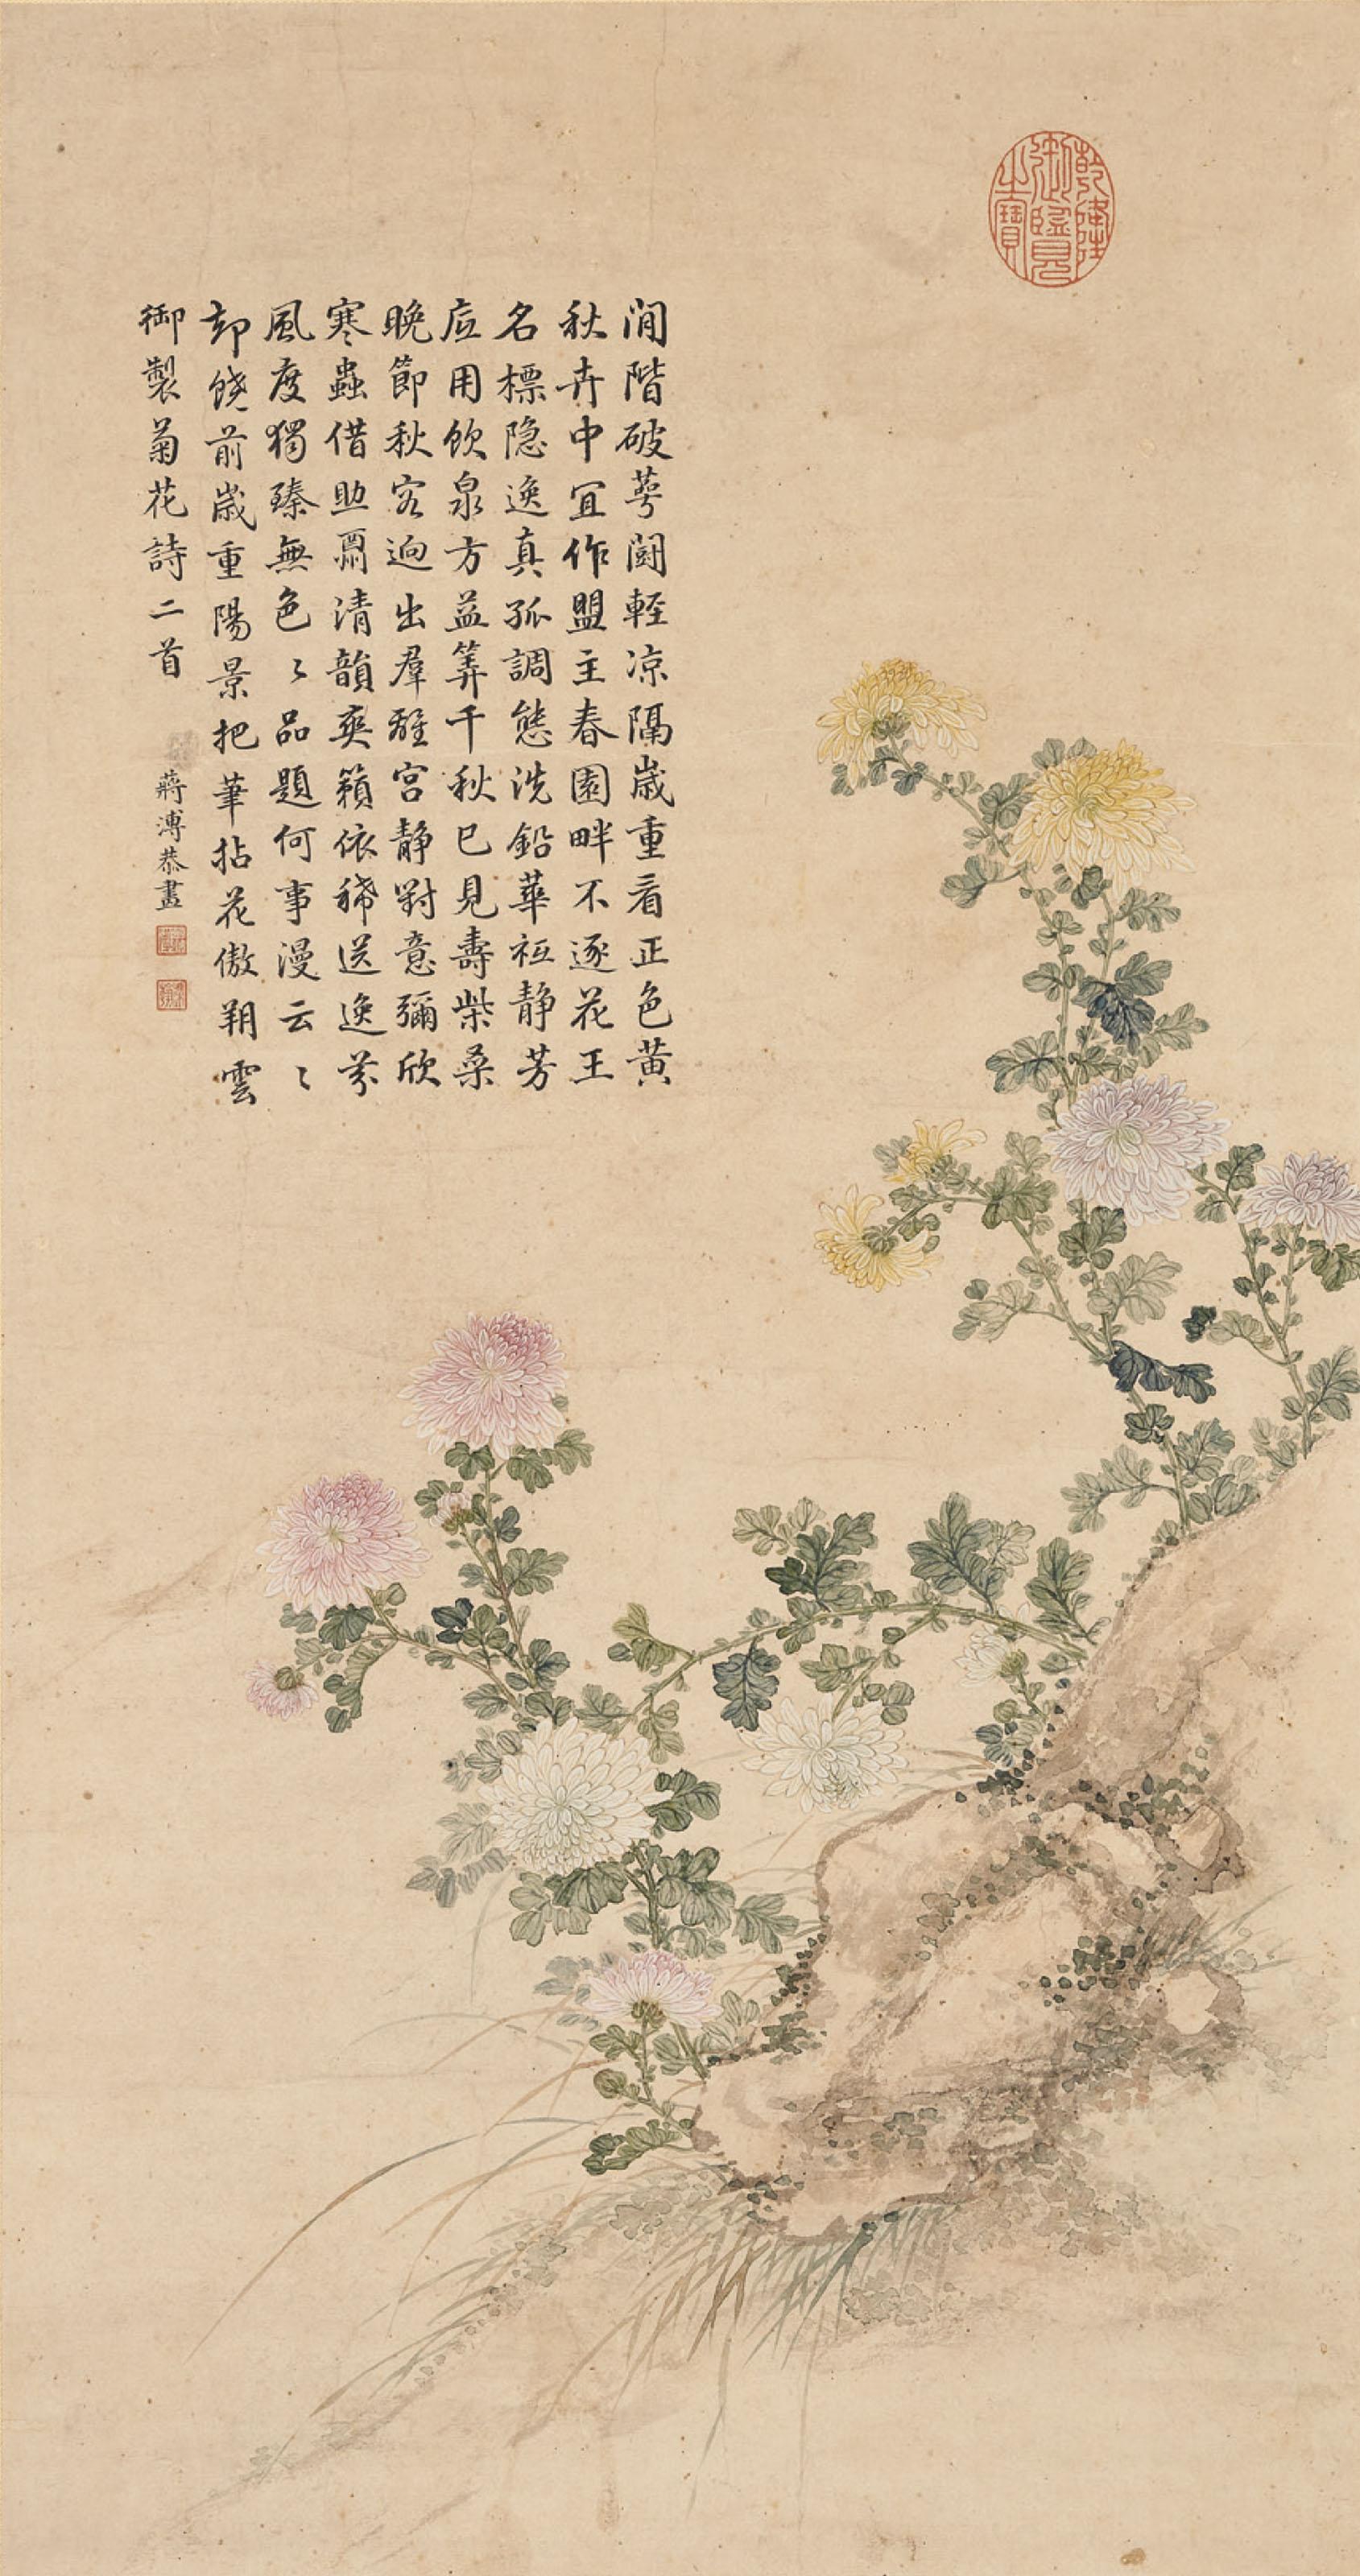 乾隆
御覽
之寶
閒階破萼鬪輕凉隔歲重看正色黃
秋卉中宜作盟主春園畔不逐花王
名標隐逸真孤調態洗鉛華祗静芳
应用飲泉方益筭千秋已見壽柴桑
晚節秋容逈出羣離宮靜對意彌欣
寒蟲借助爾清韻爽籟依稀送逸芬
風度獨臻無色〻品題何事漫云〻
却饒前歲重陽景把筆拈花傲朔雲
御製菊花詩二首
蔣溥恭畫